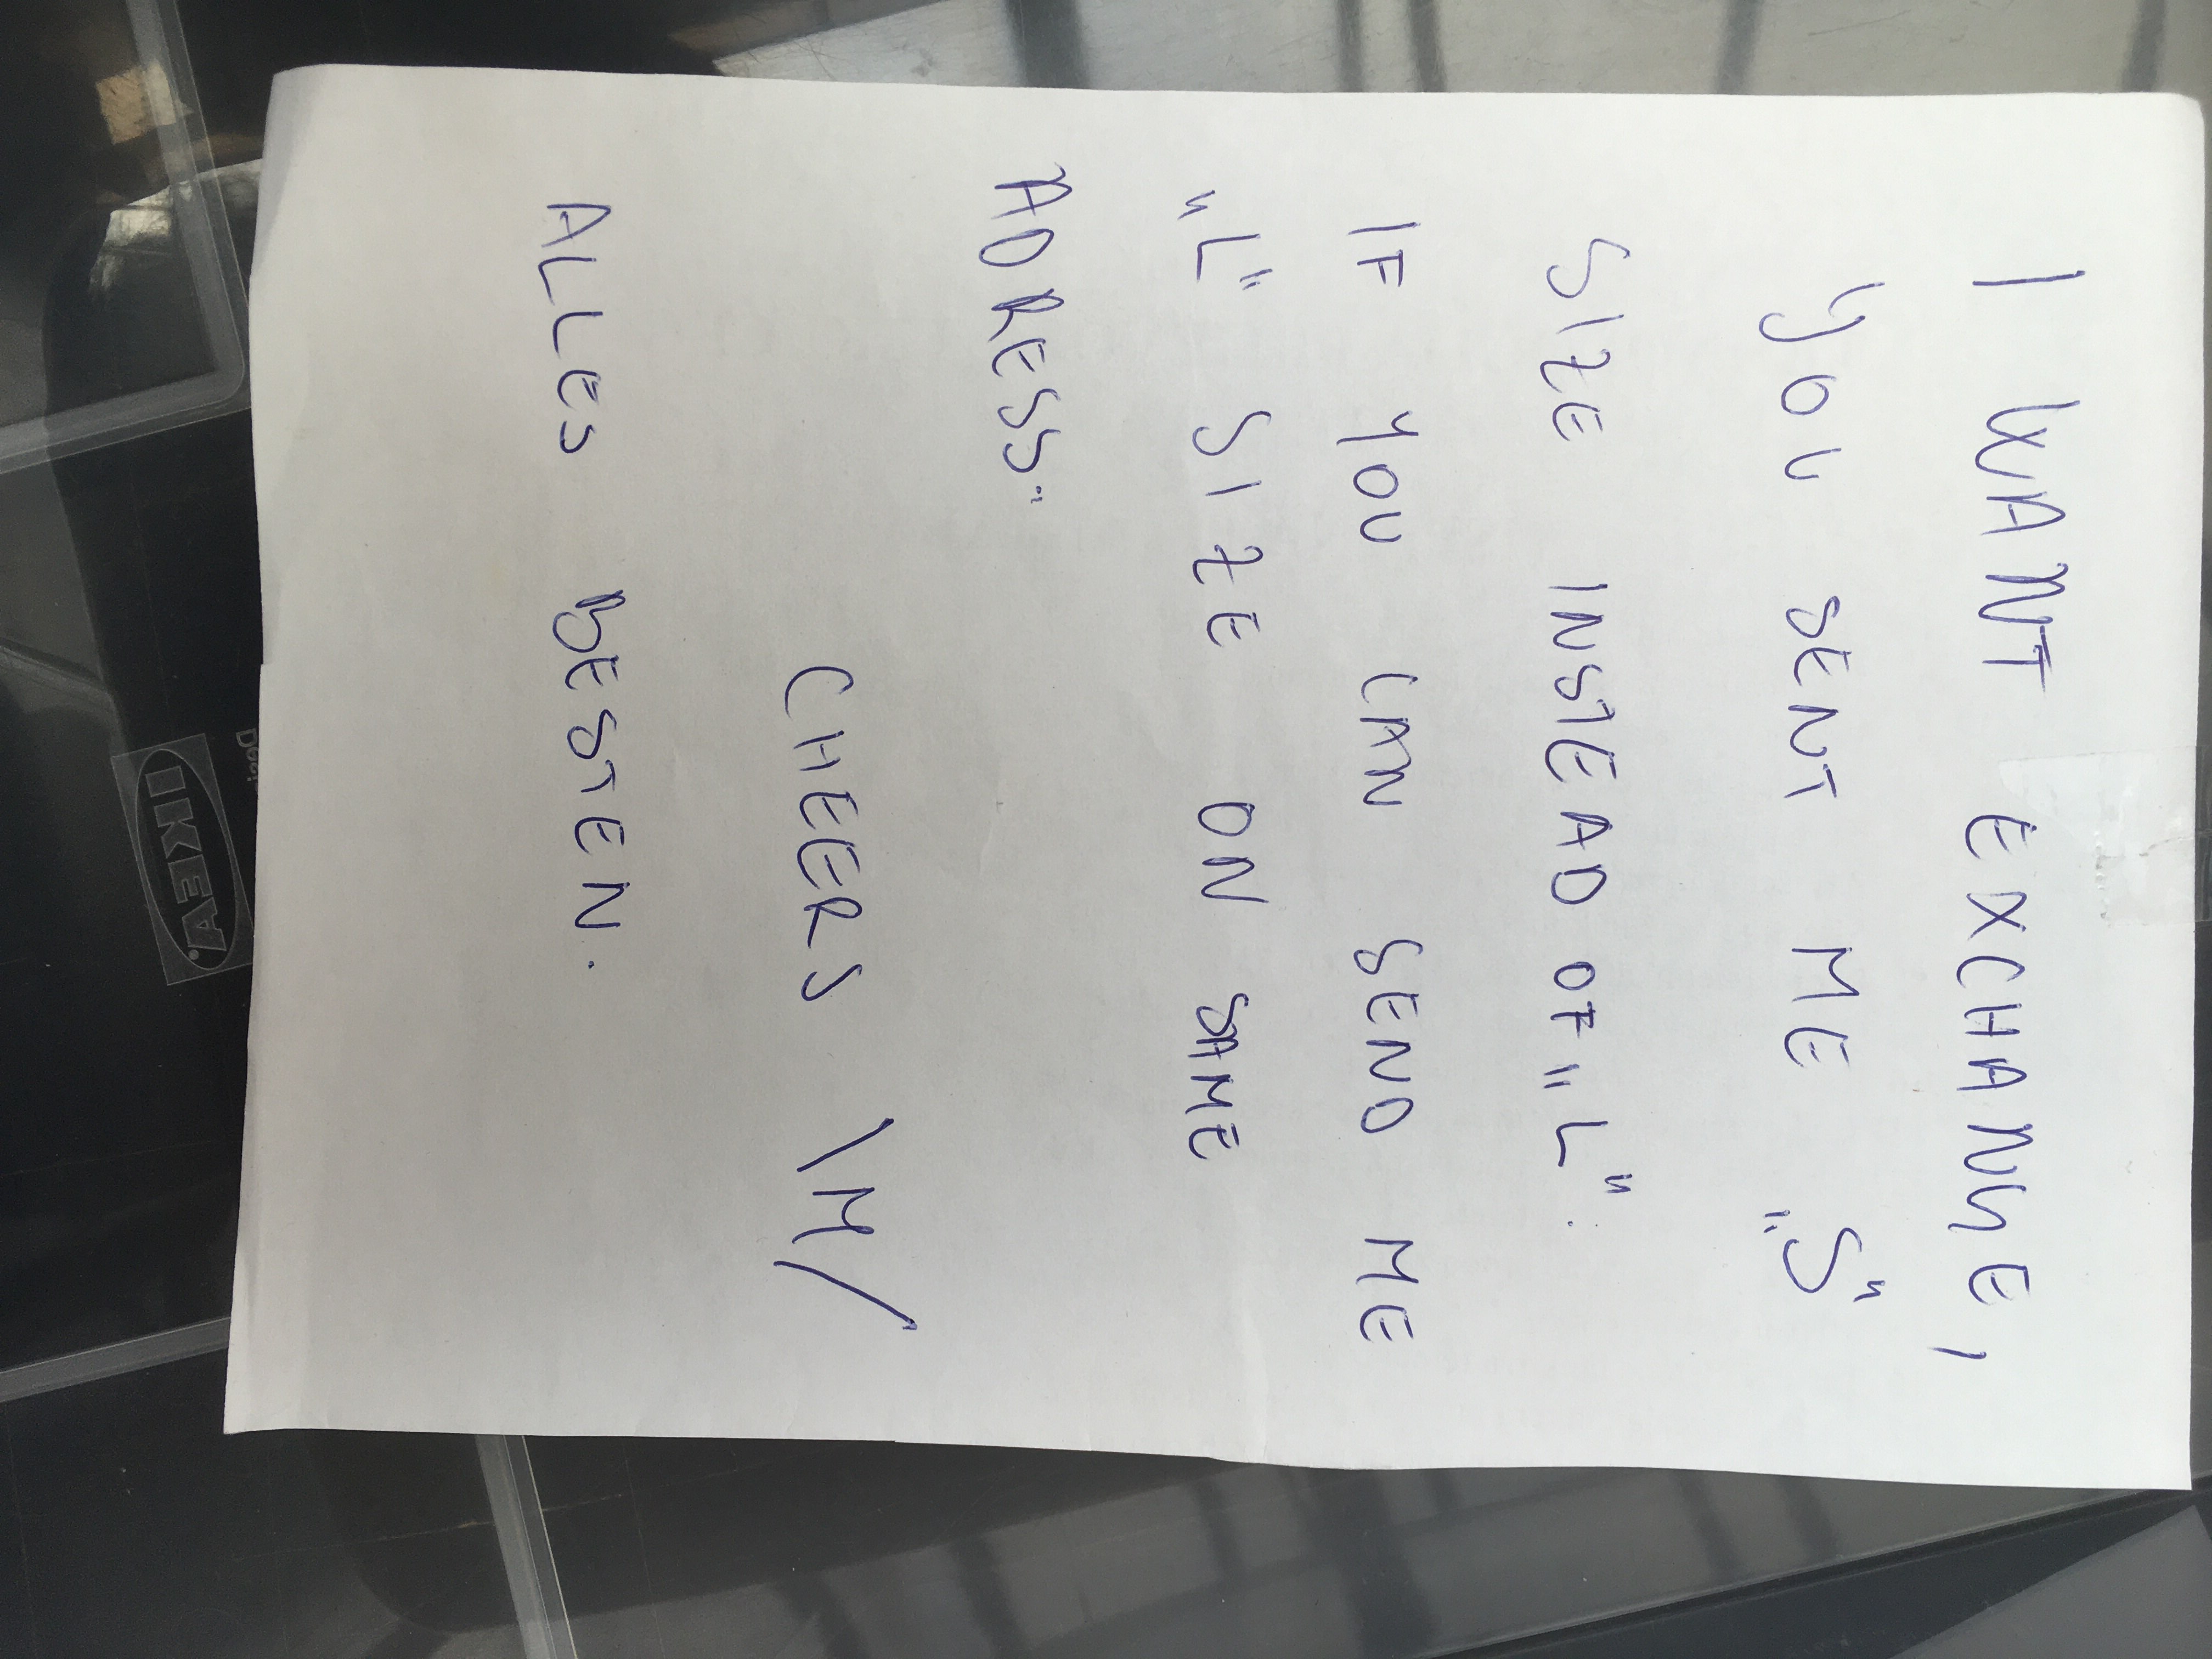 I WANT EXCHANGE,
YOU SENT ME „S“
SIZE INSTEAD OF „L“.
IF YOU CAN SEND ME
„L“ SIZE ON SAME
ADRESS..
CHEERS \M/
ALLES BESTEN.
IKEA